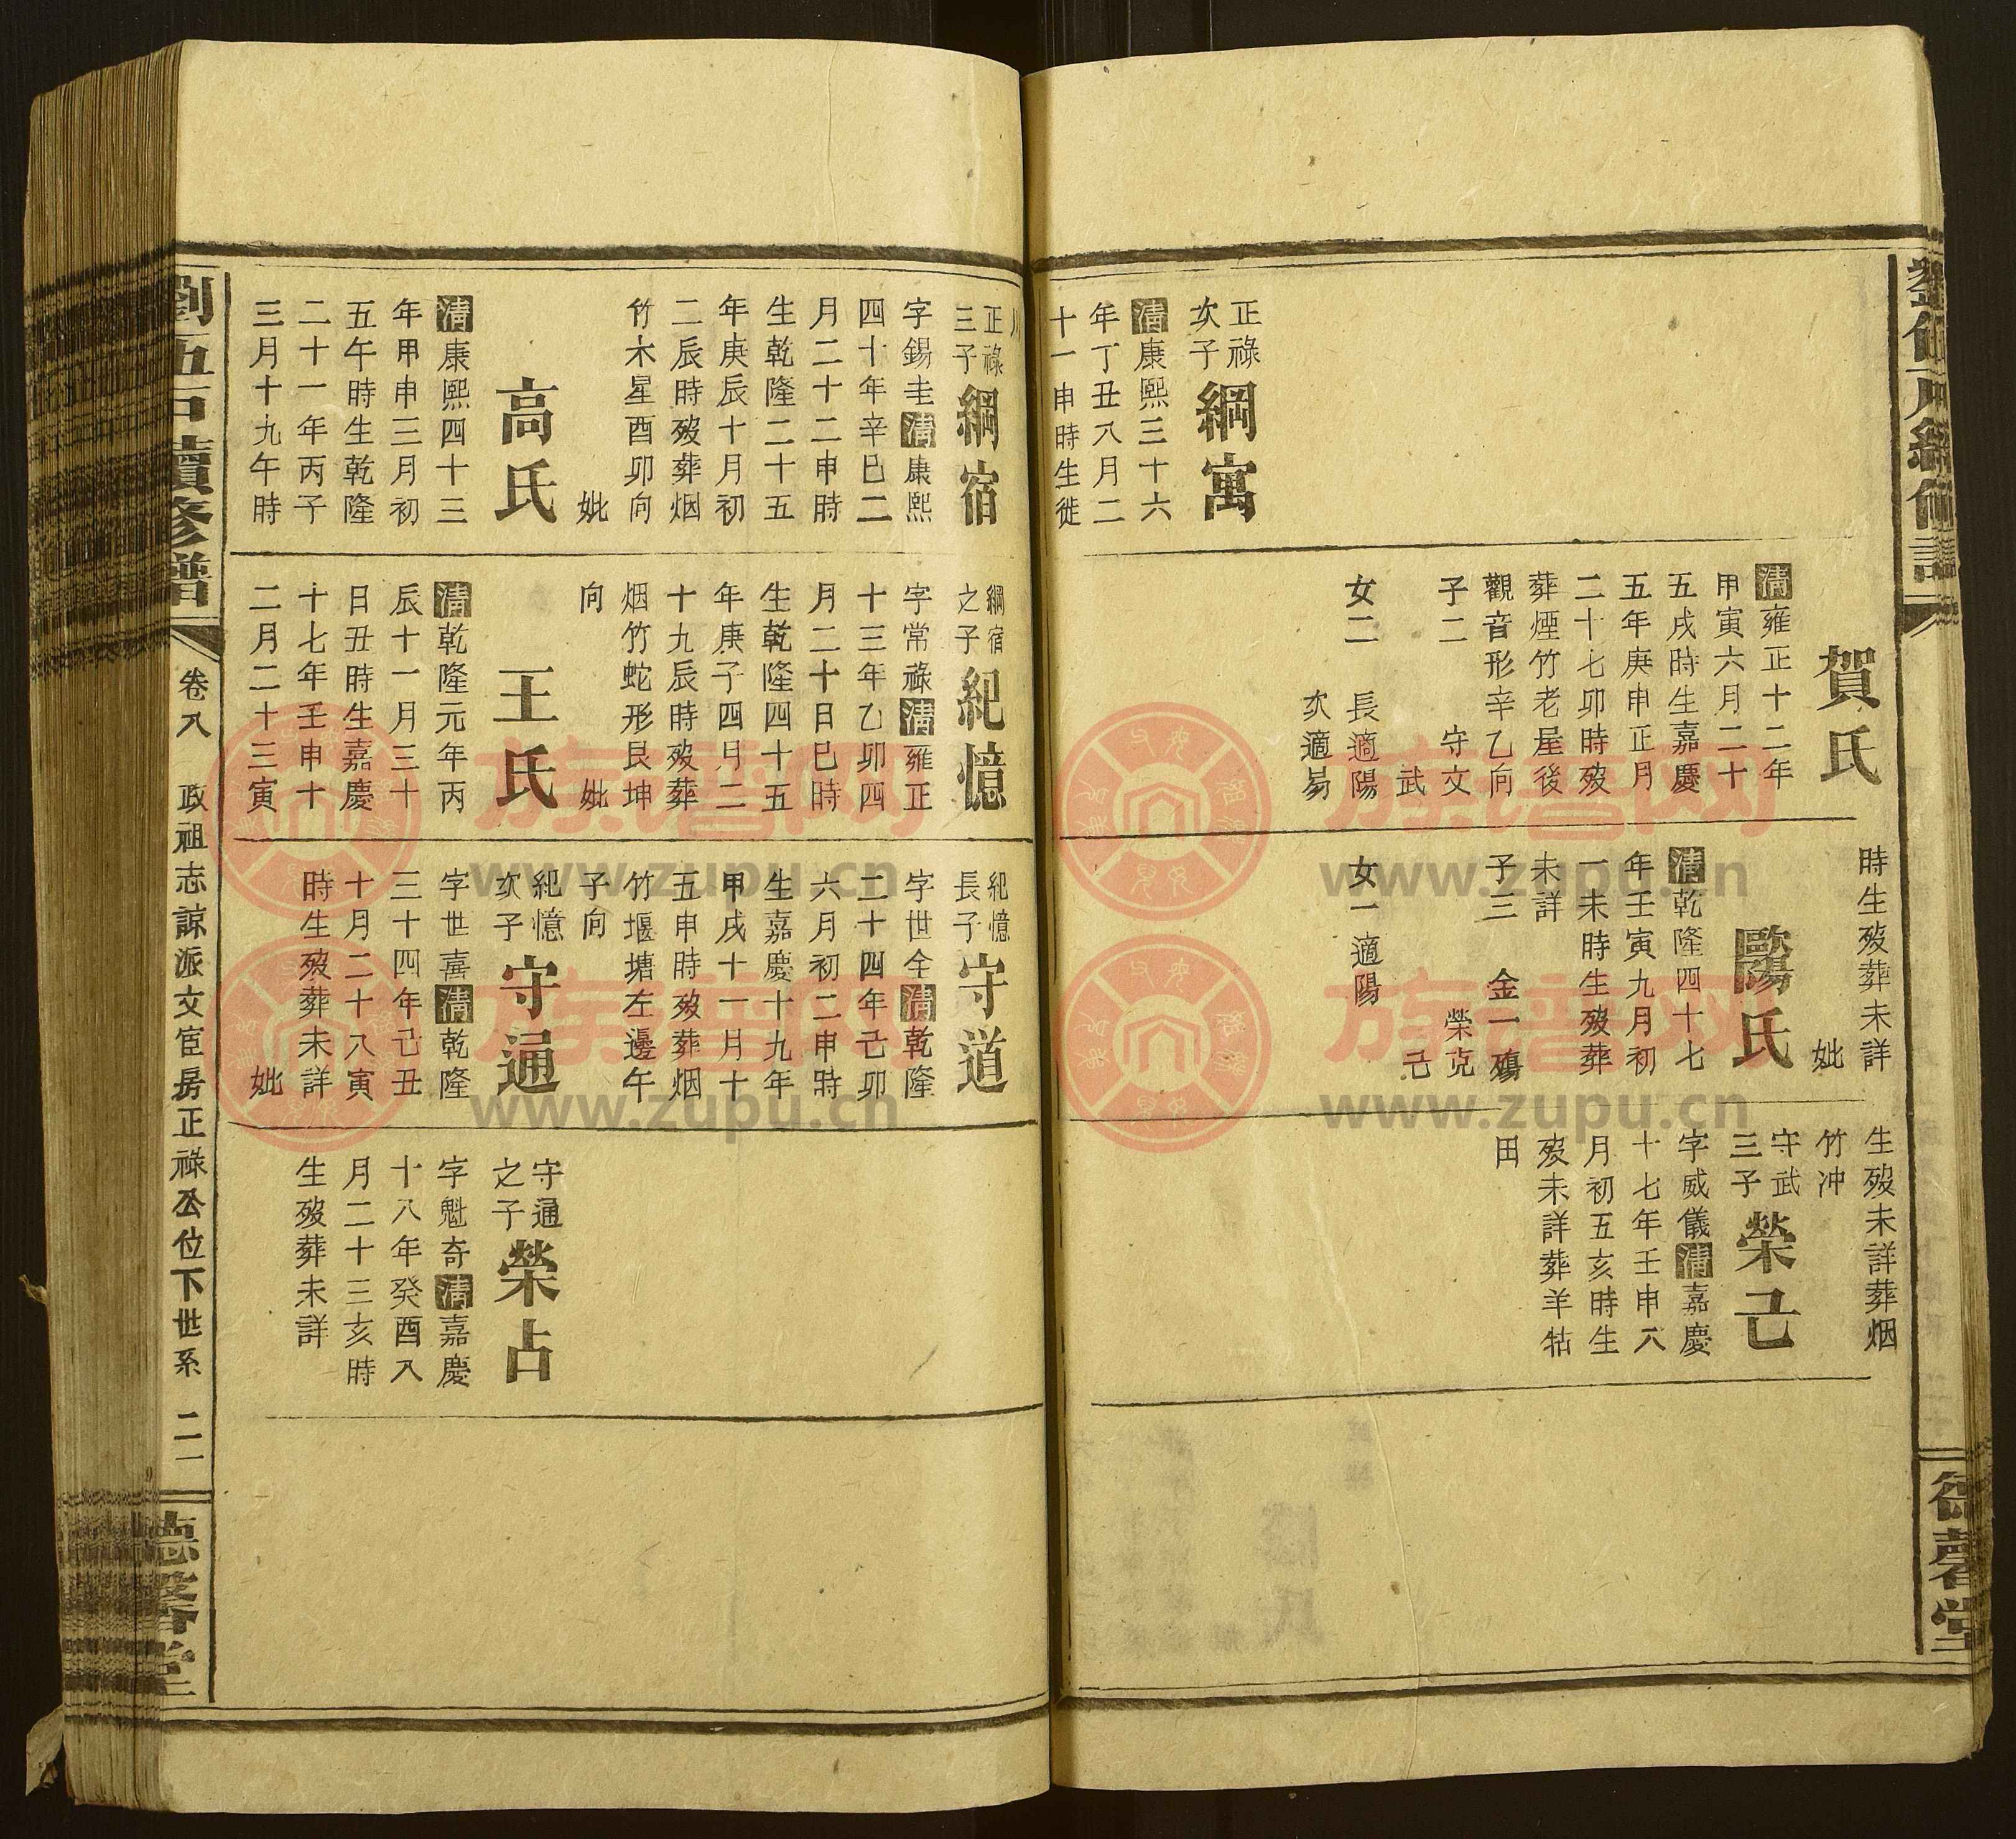 正祿
次子
綱寓
清康熙三十六
年丁丑八月二
十一申時生徙
賀氏
清雍正十二年
甲寅六月二十
五戌時生嘉慶
五年庚申正月
二十七卯時歿
葬煙竹老屋後
觀音形辛乙向
子二 守文
武
女二 長適陽
次適易
時生歿葬未詳
妣
歐陽氏
清乾隆四十七
年壬寅九月初
一未時生歿葬
未詳
子三 金一殤
榮克
己
女一適陽
生歿未詳葬烟
竹冲
守武
三子
榮己
字威儀清嘉慶
十七年壬申八
月初五亥時生
歿未詳葬羊牯
田
德馨堂
川
正祿
三子
綱宿
字錫圭清康熙
四十年辛巳二
月二十二申時
生乾隆二十五
年庚辰十月初
二辰時歿葬烟
竹木星酉卯向
妣
高氏
清康熙四十三
年甲申三月初
五午時生乾隆
二十一年丙子
三月十九午時
綱宿
之子
紀憶
字常祿清雍正
十三年乙卯四
月二十日巳時
生乾隆四十五
年庚子四月二
十九辰時歿葬
烟竹蛇形艮坤
向 妣
王氏
清乾隆元年丙
辰十一月三十
日丑時生嘉慶
十七年壬申十
二月二十三寅
紀憶
長子
守道
字世全清乾隆
二十四年己卯
六月初二申時
生嘉慶十九年
甲戌十一月十
五申時歿葬烟
竹堰塘左邊午
子向
紀憶
次子
守通
字世喜清乾隆
三十四年己丑
十月二十八寅
時生歿葬未詳
妣
守通
之子
榮占
字魁奇清嘉慶
十八年癸酉八
月二十三亥時
生歿葬未詳
劉五戸續修譜
卷八 政祖志諒派文宦房正祿公位下世系 二一
德馨堂
族譜网
www.zupu.cn
族譜网
www.zupu.cn
族譜网
www.zupu.cn
族譜网
www.zupu.cn